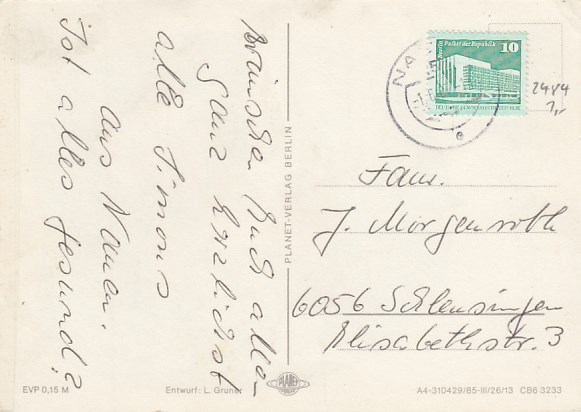 wünschen Euch allen
ganz herzlichst
alle Simons
aus Nauen.
Ist alles gesund?
PLANET-VERLAG BERLIN
Berlin Palast der Republik 10
DEUTSCHE DEMOKRATISCHE REPUBLIK
NA
2484
1,-
Fam.
J. Morgenroth
6056 Schleusingen
Elisabethstr. 3
EVP 0,15 M
Entwurf: L. Gruner
PLANET
A4-310429/85-III/26/13 CB6 3233